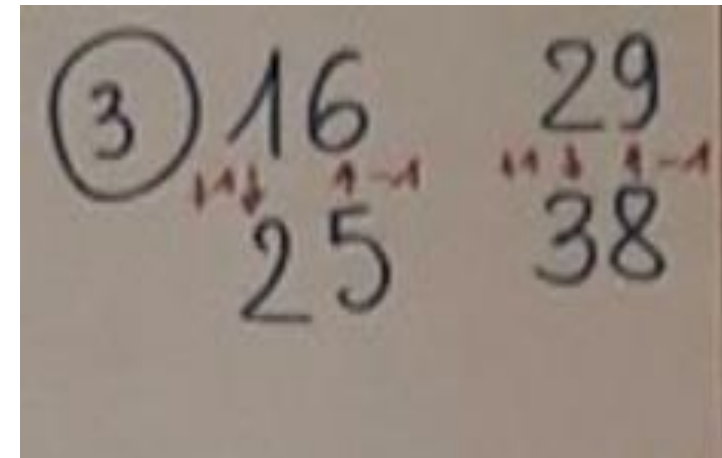 3 16 29
↓1↓ ↑-1 ↓1 ↓ ↑-1
25 38